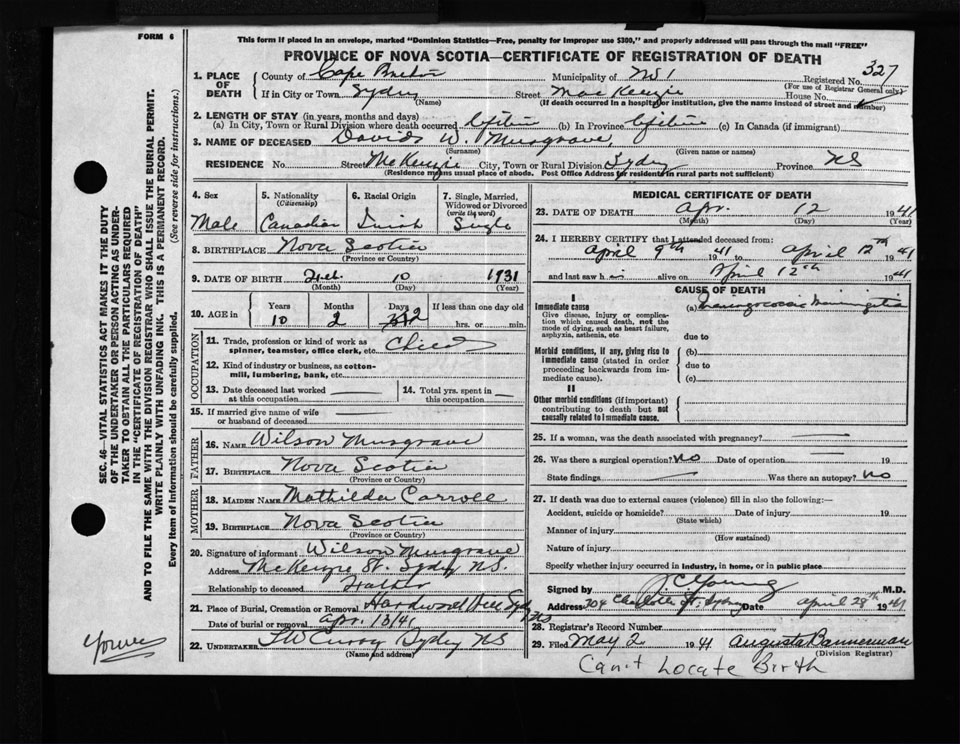 FORM 6
This form if placed in an envelope, marked "Dominion Statistics—Free, penalty for improper use $300," and properly addressed will pass through the mail "FREE"
PROVINCE OF NOVA SCOTIA—CERTIFICATE OF REGISTRATION OF DEATH
327
1. PLACE OF DEATH County of Cape Breton Municipality of No 1 Registered No.
(For use of Registrar General only)
If in City or Town Sydney Street MacKenzie House No.
(Name) (If death occurred in a hospital or institution, give the name instead of street and number)
2. LENGTH OF STAY (in years, months and days)
(a) In City, Town or Rural Division where death occurred Lifetime (b) In Province Lifetime (c) In Canada (if immigrant)
3. NAME OF DECEASED David W. Musgrave
(Surname) (Given name or names)
RESIDENCE No. Street McKenzie City, Town or Rural Division Sydney Province NS
(Residence means usual place of abode. Post Office Address for residents in rural parts not sufficient)
4. Sex Male
5. Nationality (Citizenship) Canadian
6. Racial Origin Irish
7. Single, Married, Widowed or Divorced (write the word) Single
8. BIRTHPLACE Nova Scotia
(Province or Country)
9. DATE OF BIRTH Feb. 10 1931
(Month) (Day) (Year)
10. AGE in Years Months Days If less than one day old
10 2 2 hrs. or min.
OCCUPATION
11. Trade, profession or kind of work as spinner, teamster, office clerk, etc. Child
12. Kind of industry or business, as cotton-mill, lumbering, bank, etc.
13. Date deceased last worked at this occupation
14. Total yrs. spent in this occupation
15. If married give name of wife or husband of deceased
FATHER
16. NAME Wilson Musgrave
17. BIRTHPLACE Nova Scotia
(Province or Country)
MOTHER
18. MAIDEN NAME Mathilda Carroll
19. BIRTHPLACE Nova Scotia
(Province or Country)
20. Signature of informant Wilson Musgrave
Address McKenzie St. Sydney N.S.
Relationship to deceased Father
21. Place of Burial, Cremation or Removal Hardwood Hill Sydney NS
Date of burial or removal Apr. 13/41
22. UNDERTAKER Curry Sydney NS
(Name and address)
MEDICAL CERTIFICATE OF DEATH
23. DATE OF DEATH Apr. 12 1941
(Month) (Day) (Year)
24. I HEREBY CERTIFY that I attended deceased from:
April 9th 1941 to April 12th 1941
and last saw h im alive on April 12th 1941
CAUSE OF DEATH
I
Immediate cause (a) Meningococcic Meningitis
Give disease, injury or complication which caused death, not the mode of dying, such as heart failure, asphyxia, asthenia, etc
due to
Morbid conditions, if any, giving rise to immediate cause (stated in order proceeding backwards from immediate cause).
(b)
due to
(c)
II
Other morbid conditions (if important) contributing to death but not causally related to immediate cause.
25. If a woman, was the death associated with pregnancy?
26. Was there a surgical operation? No Date of operation 19
State findings Was there an autopsy? No
27. If death was due to external causes (violence) fill in also the following:—
Accident, suicide or homicide? Date of injury 19
(State which)
Manner of injury
(How sustained)
Nature of injury
Specify whether injury occurred in industry, in home, or in public place
Signed by J C Young M.D.
Address 204 Charlotte St. Sydney Date April 28th 1941
28. Registrar's Record Number
29. Filed May 2 1941 Augusta Bannerman
(Division Registrar)
Can't Locate Birth
SEC. 46—VITAL STATISTICS ACT MAKES IT THE DUTY
OF THE UNDERTAKER OR PERSON ACTING AS UNDER-
TAKER TO OBTAIN ALL THE PARTICULARS REQUIRED
IN THE "CERTIFICATE OF REGISTRATION OF DEATH"
AND TO FILE THE SAME WITH THE DIVISION REGISTRAR WHO SHALL ISSUE THE BURIAL PERMIT.
WRITE PLAINLY WITH UNFADING INK. THIS IS A PERMANENT RECORD.
Every item of information should be carefully supplied. (See reverse side for instructions.)